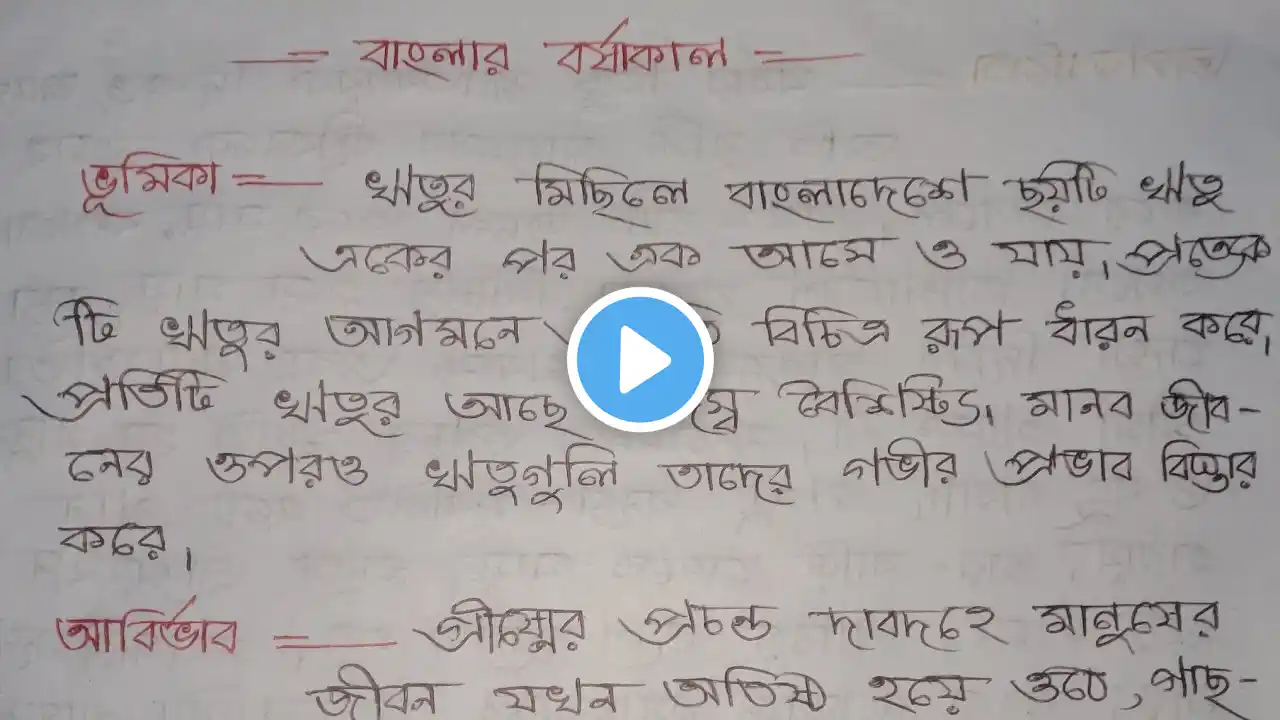 বাংলার বর্ষাকাল
ভূমিকা = ঋতুর মিছিলে বাংলাদেশে ছয়টি ঋতু
একের পর এক আসে ও যায়। প্রত্যেক
টি ঋতুর আগমনে বিচিত্র রূপ ধারন করে।
প্রতিটি ঋতুর আছে বৈশিষ্ট্যি। মানব জীব-
নের ওপরও ঋতুগুলি তাদের গভীর প্রভাব বিস্তার
করে।
আবির্ভাব = গ্রীষ্মের প্রচন্ড দাবদাহে মানুষের
জীবন যখন অতিষ্ঠ হয়ে ওঠে, গাছ-